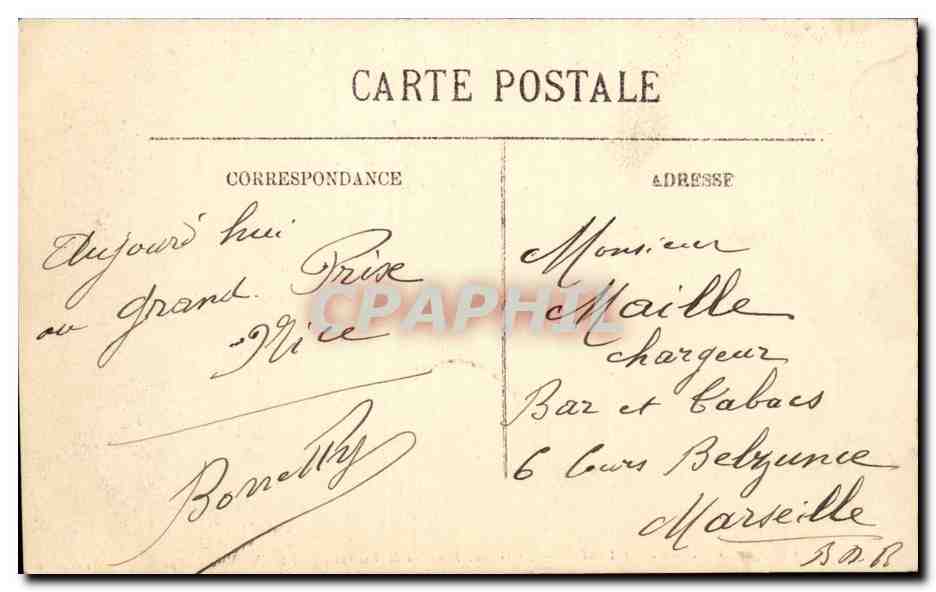 CARTE POSTALE
CORRESPONDANCE
Aujourd hui
au grand Prix
Nice
ADRESSE
Monsieur
Maille
chargeur
Bar et Tabacs
6 Cours Belzunce
Marseille
B D R
CPAPHIL